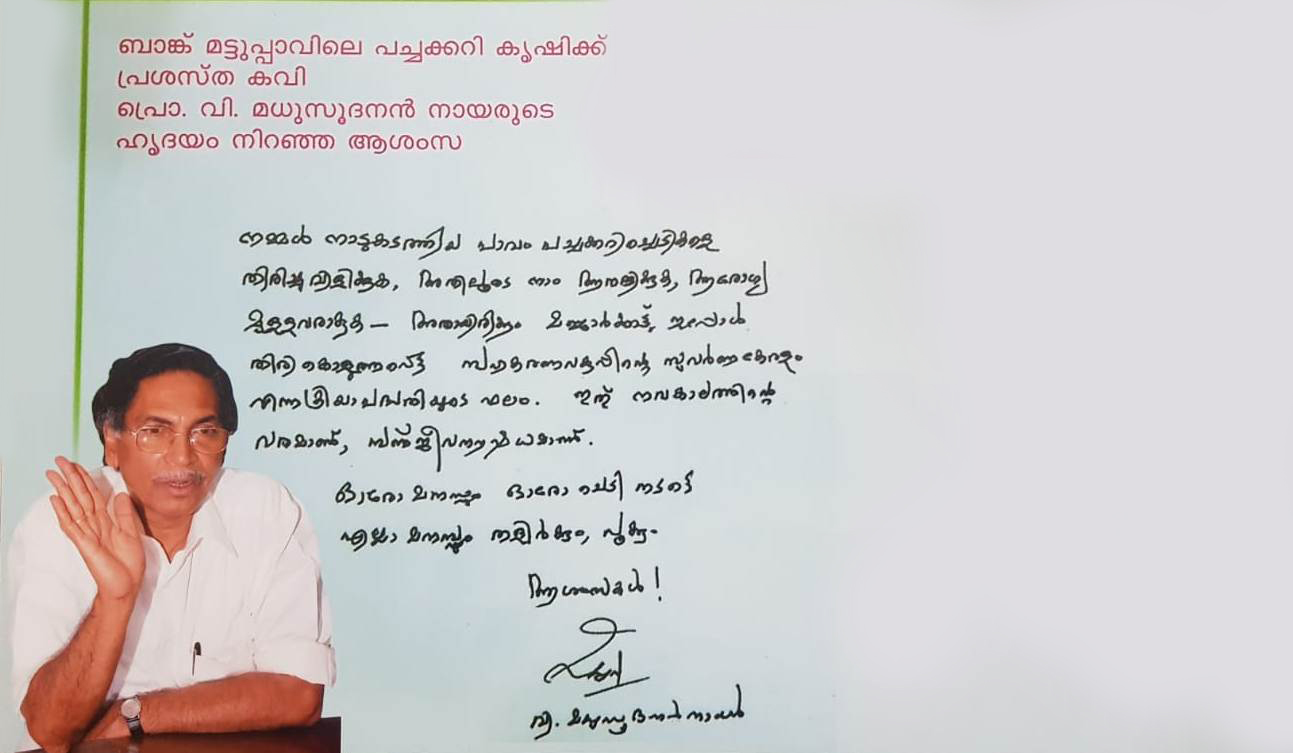 ബാങ്ക് മട്ടുപ്പാവിലെ പച്ചക്കറി കൃഷിക്ക്
പ്രശസ്ത കവി
പ്രൊ. വി. മധുസൂദനൻ നായരുടെ
ഹൃദയം നിറഞ്ഞ ആശംസ
നമ്മൾ നാടുകടത്തിയ പാവം പച്ചക്കറിച്ചെടികളെ
തിരിച്ചു വിളിക്കുക, അതിലൂടെ നാം ആനന്ദിക്കുക, ആരോഗ്യ
മുള്ളവരാകുക — അതായിരിക്കും മണ്ണാർക്കാട്ട്, ഇപ്പോൾ
തിരി കൊളുത്തപ്പെട്ട സഹകരണവകുപ്പിന്റെ സുവർണകേരളം
എന്ന ക്രിയാപദ്ധതിയുടെ ഫലം. ഇത് നവകാലത്തിന്റെ
വരമാണ്, സഞ്ജീവനൗഷധമാണ്.
ഓരോ മനസ്സും ഓരോ ചെടി നടട്ടെ
എല്ലാ മനസ്സും തളിർക്കും, പൂക്കും.
ആശംസകൾ!
വി. മധുസൂദനൻ നായർ